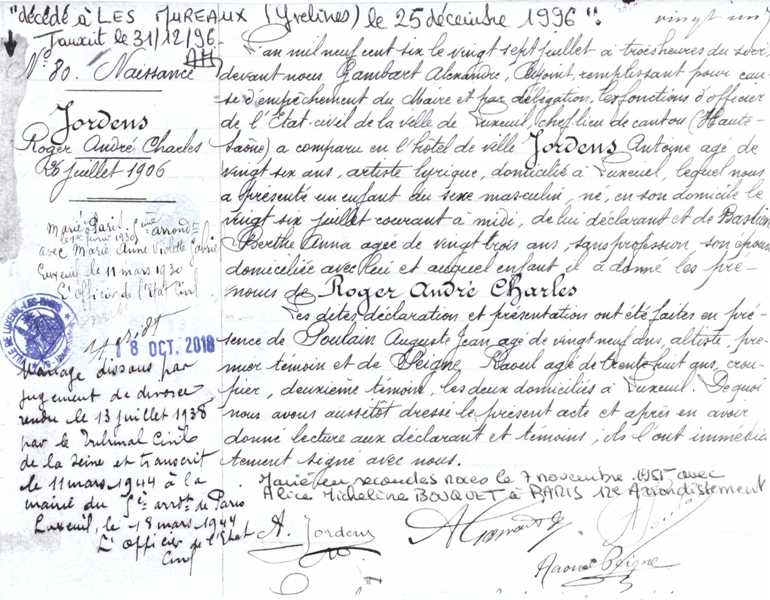 "décédé à LES MUREAUX (Yvelines) le 25 décembre 1996".
Luxeuil le 31/12/96.
N° 80. Naissance
Jordens
Roger André Charles
26 juillet 1906
Marié Paris 5ème arrondt
avec Marie Anne Violette
Luxeuil le 11 mars 1930
L'Officier de l'Etat Civil
VILLE DE LUXEUIL-LES-BAINS
18 OCT. 2018
Mariage dissous par
jugement de divorce
rendu le 13 juillet 1938
par le Tribunal Civil
de la Seine et transcrit
le 11 mars 1944 à la
mairie du 5e arrdt de Paris
Luxeuil, le 18 mars 1944
L'officier de l'Etat
Civil
vingt un
L'an mil neuf cent six le vingt sept juillet à trois heures du soir
devant nous Gambart Alexandre, Adjoint, remplissant pour cau-
se d'empêchement du Maire et par délégation, les fonctions d'officier
de l'Etat-civil de la ville de Luxeuil, chef lieu de canton (Haute-
Saône) a comparu en l'hôtel de ville Jordens Antoine agé de
vingt six ans, artiste lyrique, domicilié à Luxeuil, lequel nous
a présenté un enfant du sexe masculin, né, en son domicile le
vingt six juillet courant à midi, de lui déclarant et de Bastien
Berthe Anna agée de vingt trois ans, sans profession, son épouse
domiciliée avec lui et auquel enfant il a donné les pré-
noms de Roger André Charles
Les dites déclaration et présentation ont été faites en pré-
sence de Poulain Auguste Jean, agé de vingt neuf ans, altiste, pre-
mier témoin et de Peigne Raoul agé de trente huit ans, crou-
pier, deuxième témoin, les deux domiciliés à Luxeuil. De quoi
nous avons aussitôt dressé le présent acte et après en avoir
donné lecture aux déclarant et témoins, ils l'ont immédia-
tement signé avec nous.
Marié en secondes noces le 7 novembre 1955 avec
Alice Micheline BOUQUET à PARIS 12e Arrondissement
A. Jordens
Raoul Peigne